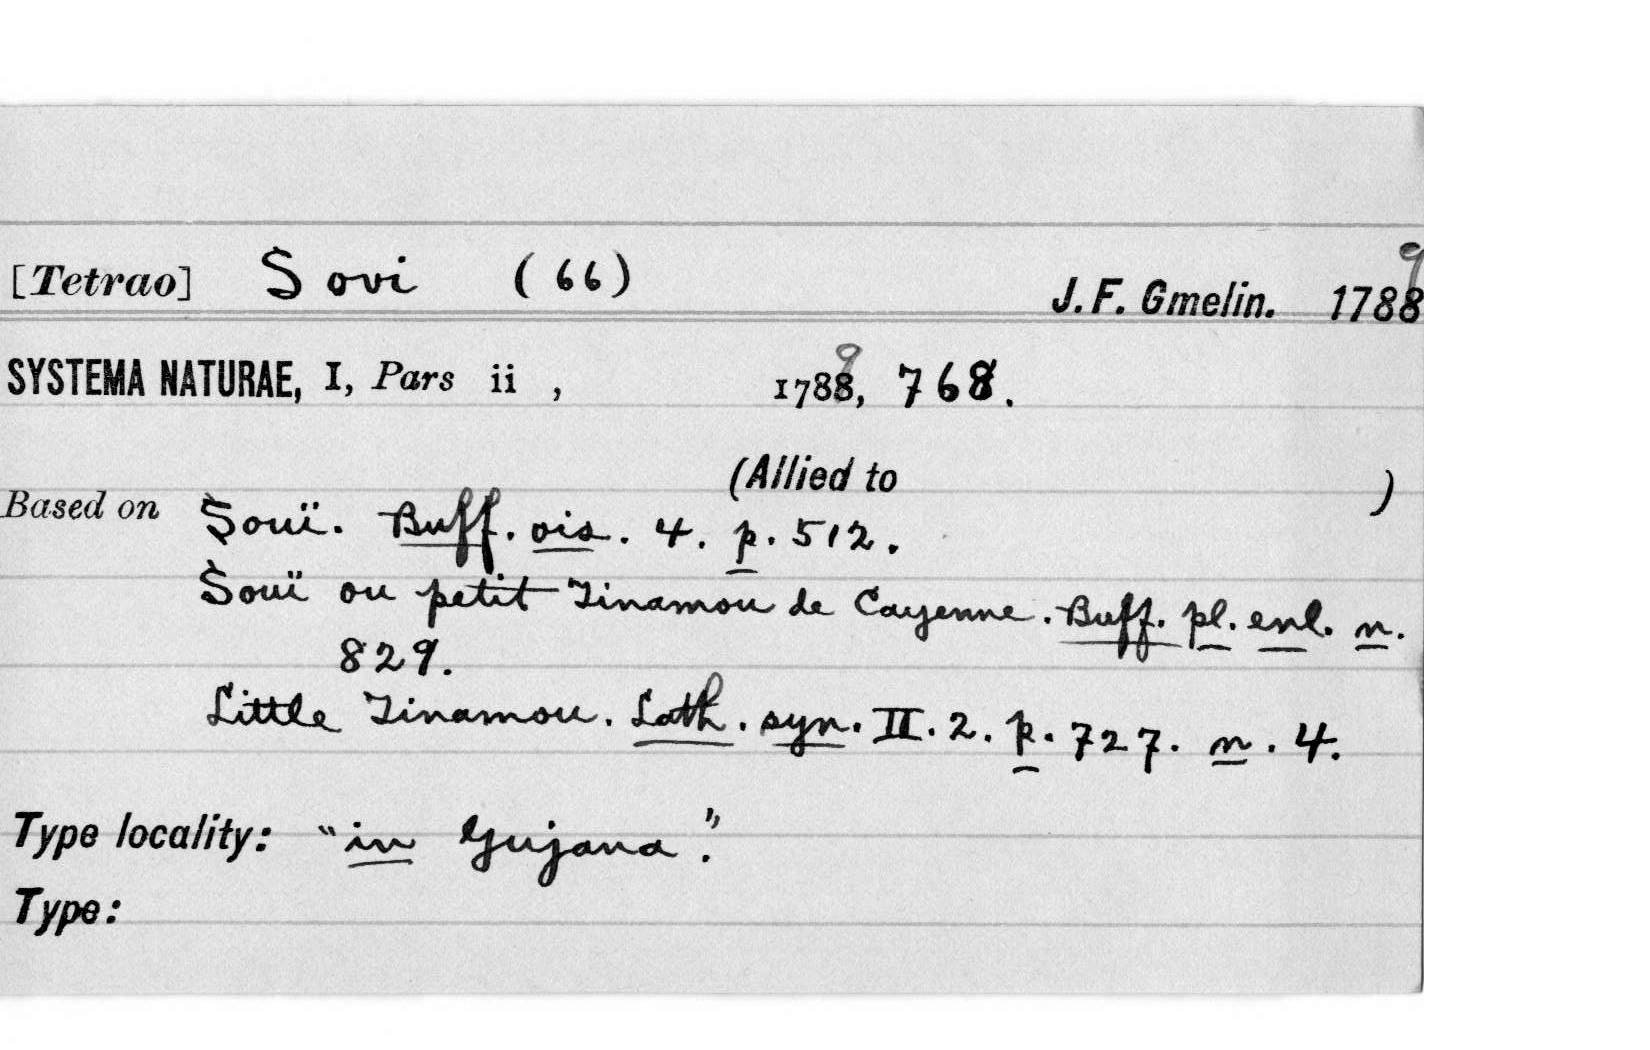 [Tetrao] Sovi (66) J. F. Gmelin. 1788 9
SYSTEMA NATURAE, I, Pars ii , 1788 9, 768.
(Allied to )
Based on Souï. Buff. ois. 4. p. 512.
Souï ou petit Tinamou de Cayenne. Buff. pl. enl. n.
829.
Little Tinamou. Lath. syn. II. 2. p. 727. n. 4.
Type locality: "in Gujana."
Type: